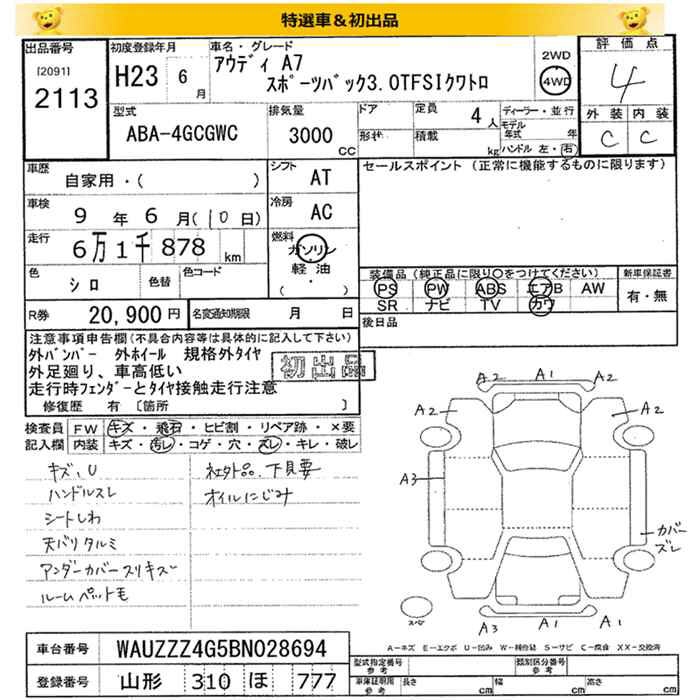 特選車＆初出品
出品番号
[2091]
2113
初度登録年月
H23 6月
車名・グレード
アウディ A7
スポーツバック3.0TFSIクワトロ
2WD
4WD
評価点
4
外装 内装
C C
型式
ABA-4GCGWC
排気量
3000
CC
ドア
形状
定員
4人
積載
kg
ディーラー・並行
モデル
年式 年
ハンドル 左・右
車歴
自家用・( )
シフト
AT
セールスポイント（正常に機能するものに限ります）
車検
9年6月(10日)
冷房
AC
走行
6万1千878km
燃料
ガソリン
軽油
(・)
色
シロ
色替
色コード
装備品（純正品に限り○をつけてください）
PS PW ABS エアB AW
SR ナビ TV カワ
新車保証書
有・無
R券
20,900円
名変通知期限
月 日
後日品
注意事項申告欄(不具合内容等は具体的に記入して下さい)
外バンパー 外ホイール 規格外タイヤ
外足廻り、車高低い
走行時フェンダーとタイヤ接触走行注意
初出品
修復歴 有〔箇所 〕
検査員
記入欄
FW
キズ・飛石・ヒビ割・リペア跡・×要
内装
キズ・汚レ・コゲ・穴・ズレ・キレ・破レ
キズ、U
ハンドルスレ
シートしわ
天バリタルミ
アンダーカバースリキズ
ルームペットモ
社外品、下見要
オイルにじみ
A2 A1 A2
A2 A2
A3
カバー
ズレ
スペア
A3 A1 A1
A－キズ E－エクボ U－凹み W－補修跡 S－サビ C－腐食 XX－交換済
車台番号
WAUZZZ4G5BN028694
登録番号
山形 310 ほ 777
型式指定番号
参考
類別区分番号
参考
車庫証明用
参考
長さ
cm
幅
cm
高さ
cm